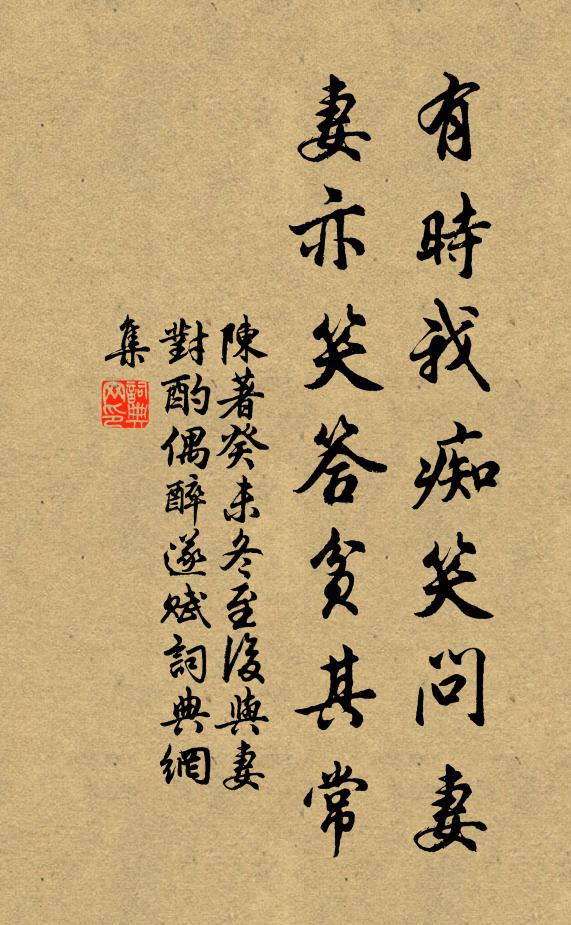 有時我痴笑問妻
妻亦笑答貧其常
陳著癸未冬至後與妻
對酌偶醉遂賦詞典網
集
詞典
网印